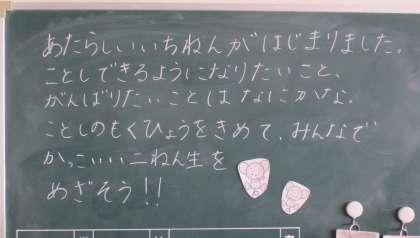 あたらしいいちねんがはじまりました。
ことしできるようになりたいこと、
がんばりたいことはなにかな。
ことしのもくひょうをきめて、みんなで
かっこいい二ねん生を
めざそう!!